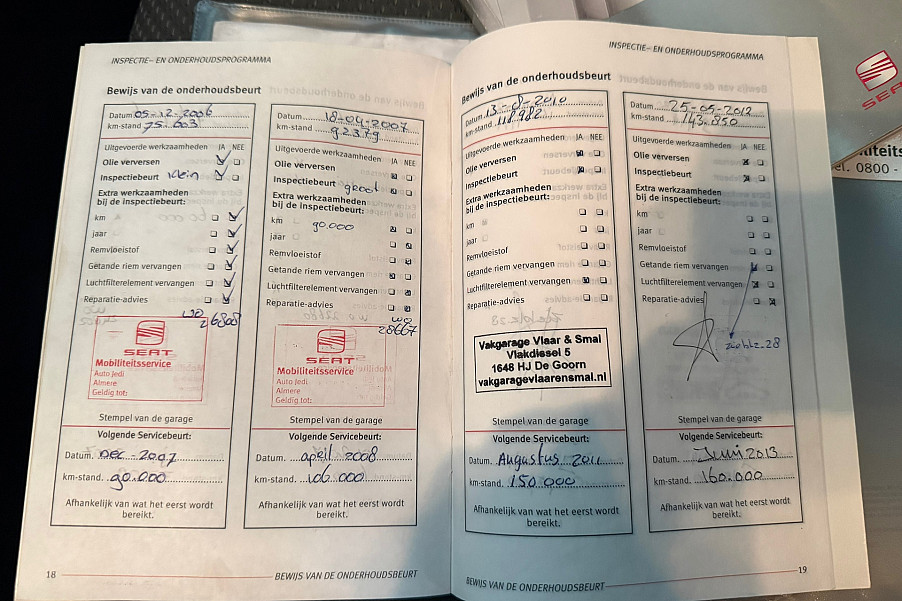 INSPECTIE- EN ONDERHOUDSPROGRAMMA
Bewijs van de onderhoudsbeurt
Datum 05-12-2006
km-stand. 75.603
Uitgevoerde werkzaamheden JA NEE
Olie verversen
Inspectiebeurt Klein
Extra werkzaamheden
bij de inspectiebeurt:
km
jaar
Remvloeistof
Getande riem vervangen
Luchtfilterelement vervangen
Reparatie-advies
WO
26808
SEAT
Mobiliteitsservice
Auto Jedi
Almere
Geldig tot:
Stempel van de garage
Volgende Servicebeurt:
Datum. Dec - 2007
km-stand. 90.000
Afhankelijk van wat het eerst wordt
bereikt.
Datum 18-04-2007
km-stand 92379
Uitgevoerde werkzaamheden JA NEE
Olie verversen
Inspectiebeurt groot
Extra werkzaamheden
bij de inspectiebeurt:
km 90.000
jaar
Remvloeistof
Getande riem vervangen
Luchtfilterelement vervangen
Reparatie-advies
WO
28667
SEAT
Mobiliteitsservice
Auto Jedi
Almere
Geldig tot:
Stempel van de garage
Volgende Servicebeurt:
Datum. april 2008
km-stand. 106.000
Afhankelijk van wat het eerst wordt
bereikt.
18
BEWIJS VAN DE ONDERHOUDSBEURT
INSPECTIE- EN ONDERHOUDSPROGRAMMA
Bewijs van de onderhoudsbeurt
Datum 13-8-2010
km-stand. 118982
Uitgevoerde werkzaamheden JA NEE
Olie verversen
Inspectiebeurt
Extra werkzaamheden
bij de inspectiebeurt:
km
jaar
Remvloeistof
Getande riem vervangen
Luchtfilterelement vervangen
Reparatie-advies
Vakgarage Vlaar & Smal
Vlakdissel 5
1648 HJ De Goorn
vakgaragevlaarensmal.nl
Stempel van de garage
Volgende Servicebeurt:
Datum. Augustus 2011
km-stand. 150.000
Afhankelijk van wat het eerst wordt
bereikt.
Datum 25-05-2012
km-stand 143.850
Uitgevoerde werkzaamheden JA NEE
Olie verversen
Inspectiebeurt
Extra werkzaamheden
bij de inspectiebeurt:
km
jaar
Remvloeistof
Getande riem vervangen
Luchtfilterelement vervangen
Reparatie-advies
zie blz. 28
Stempel van de garage
Volgende Servicebeurt:
Datum. Juni 2013
km-stand. 160.000
Afhankelijk van wat het eerst wordt
bereikt.
BEWIJS VAN DE ONDERHOUDSBEURT
19
SEA
0800 -